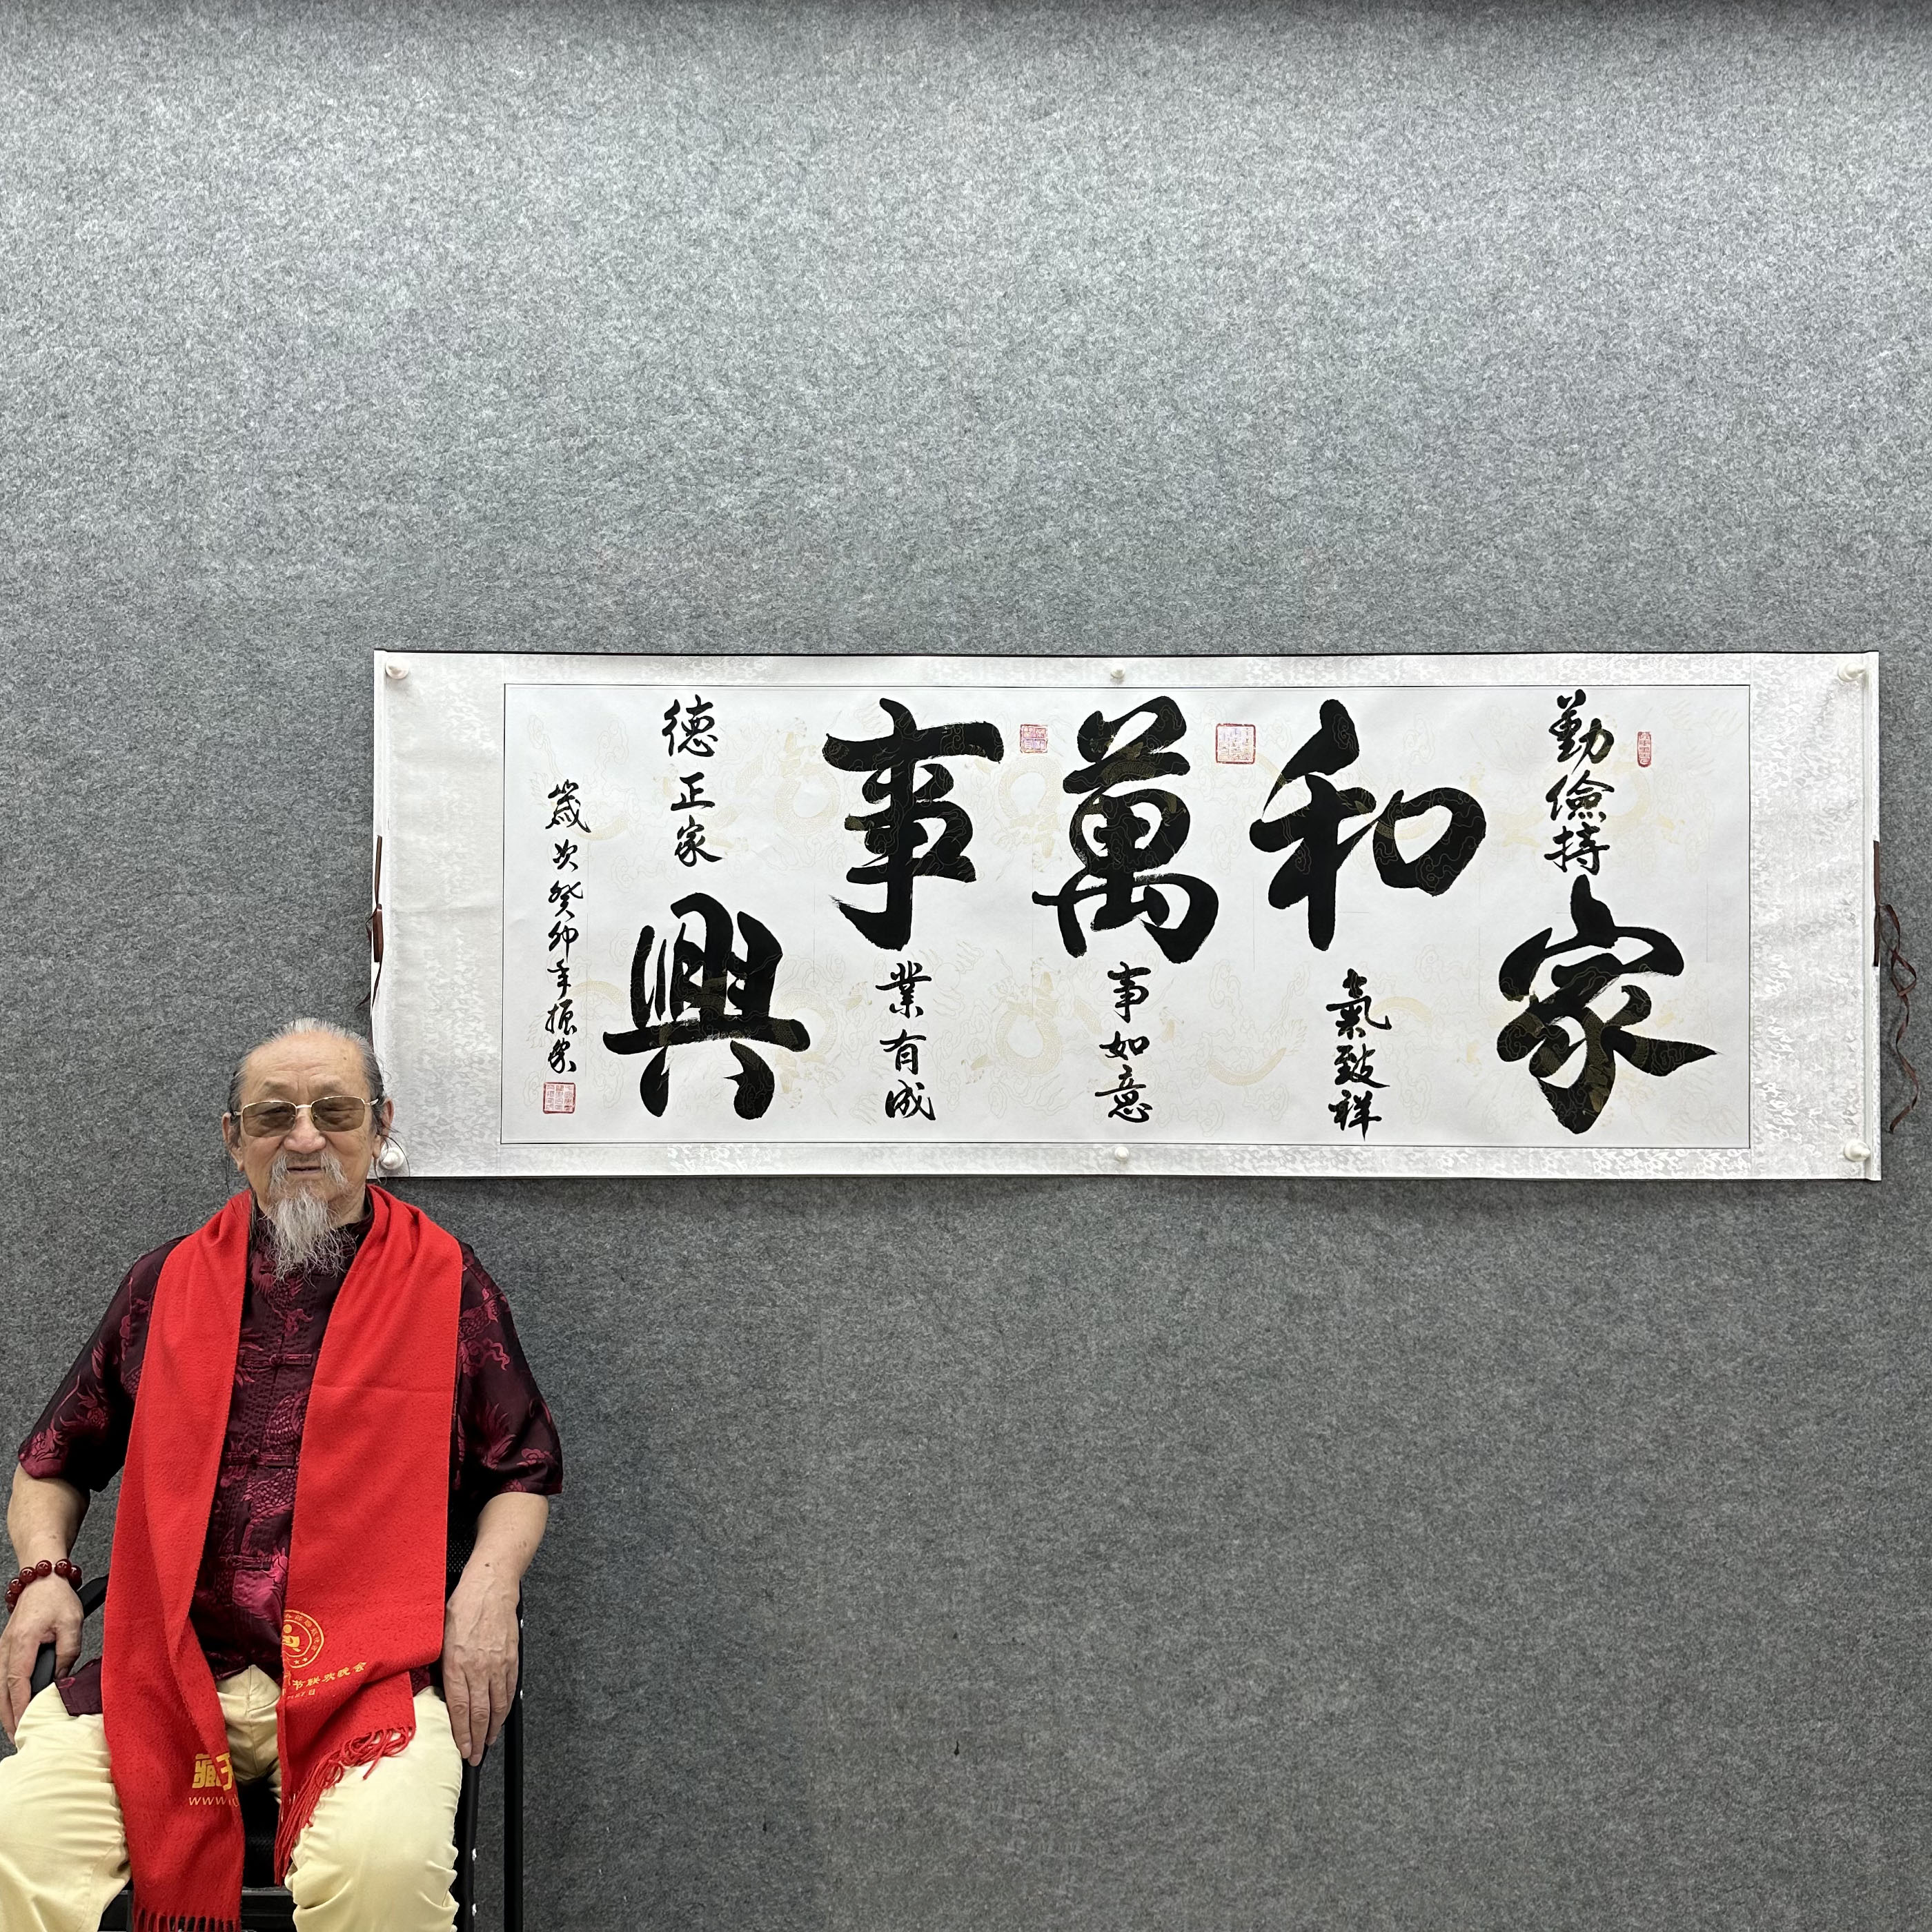 勤儉持家
和氣致祥
萬事如意
事業有成
德正家興
歲次癸卯年振家
节联欢晚会
藏
www.